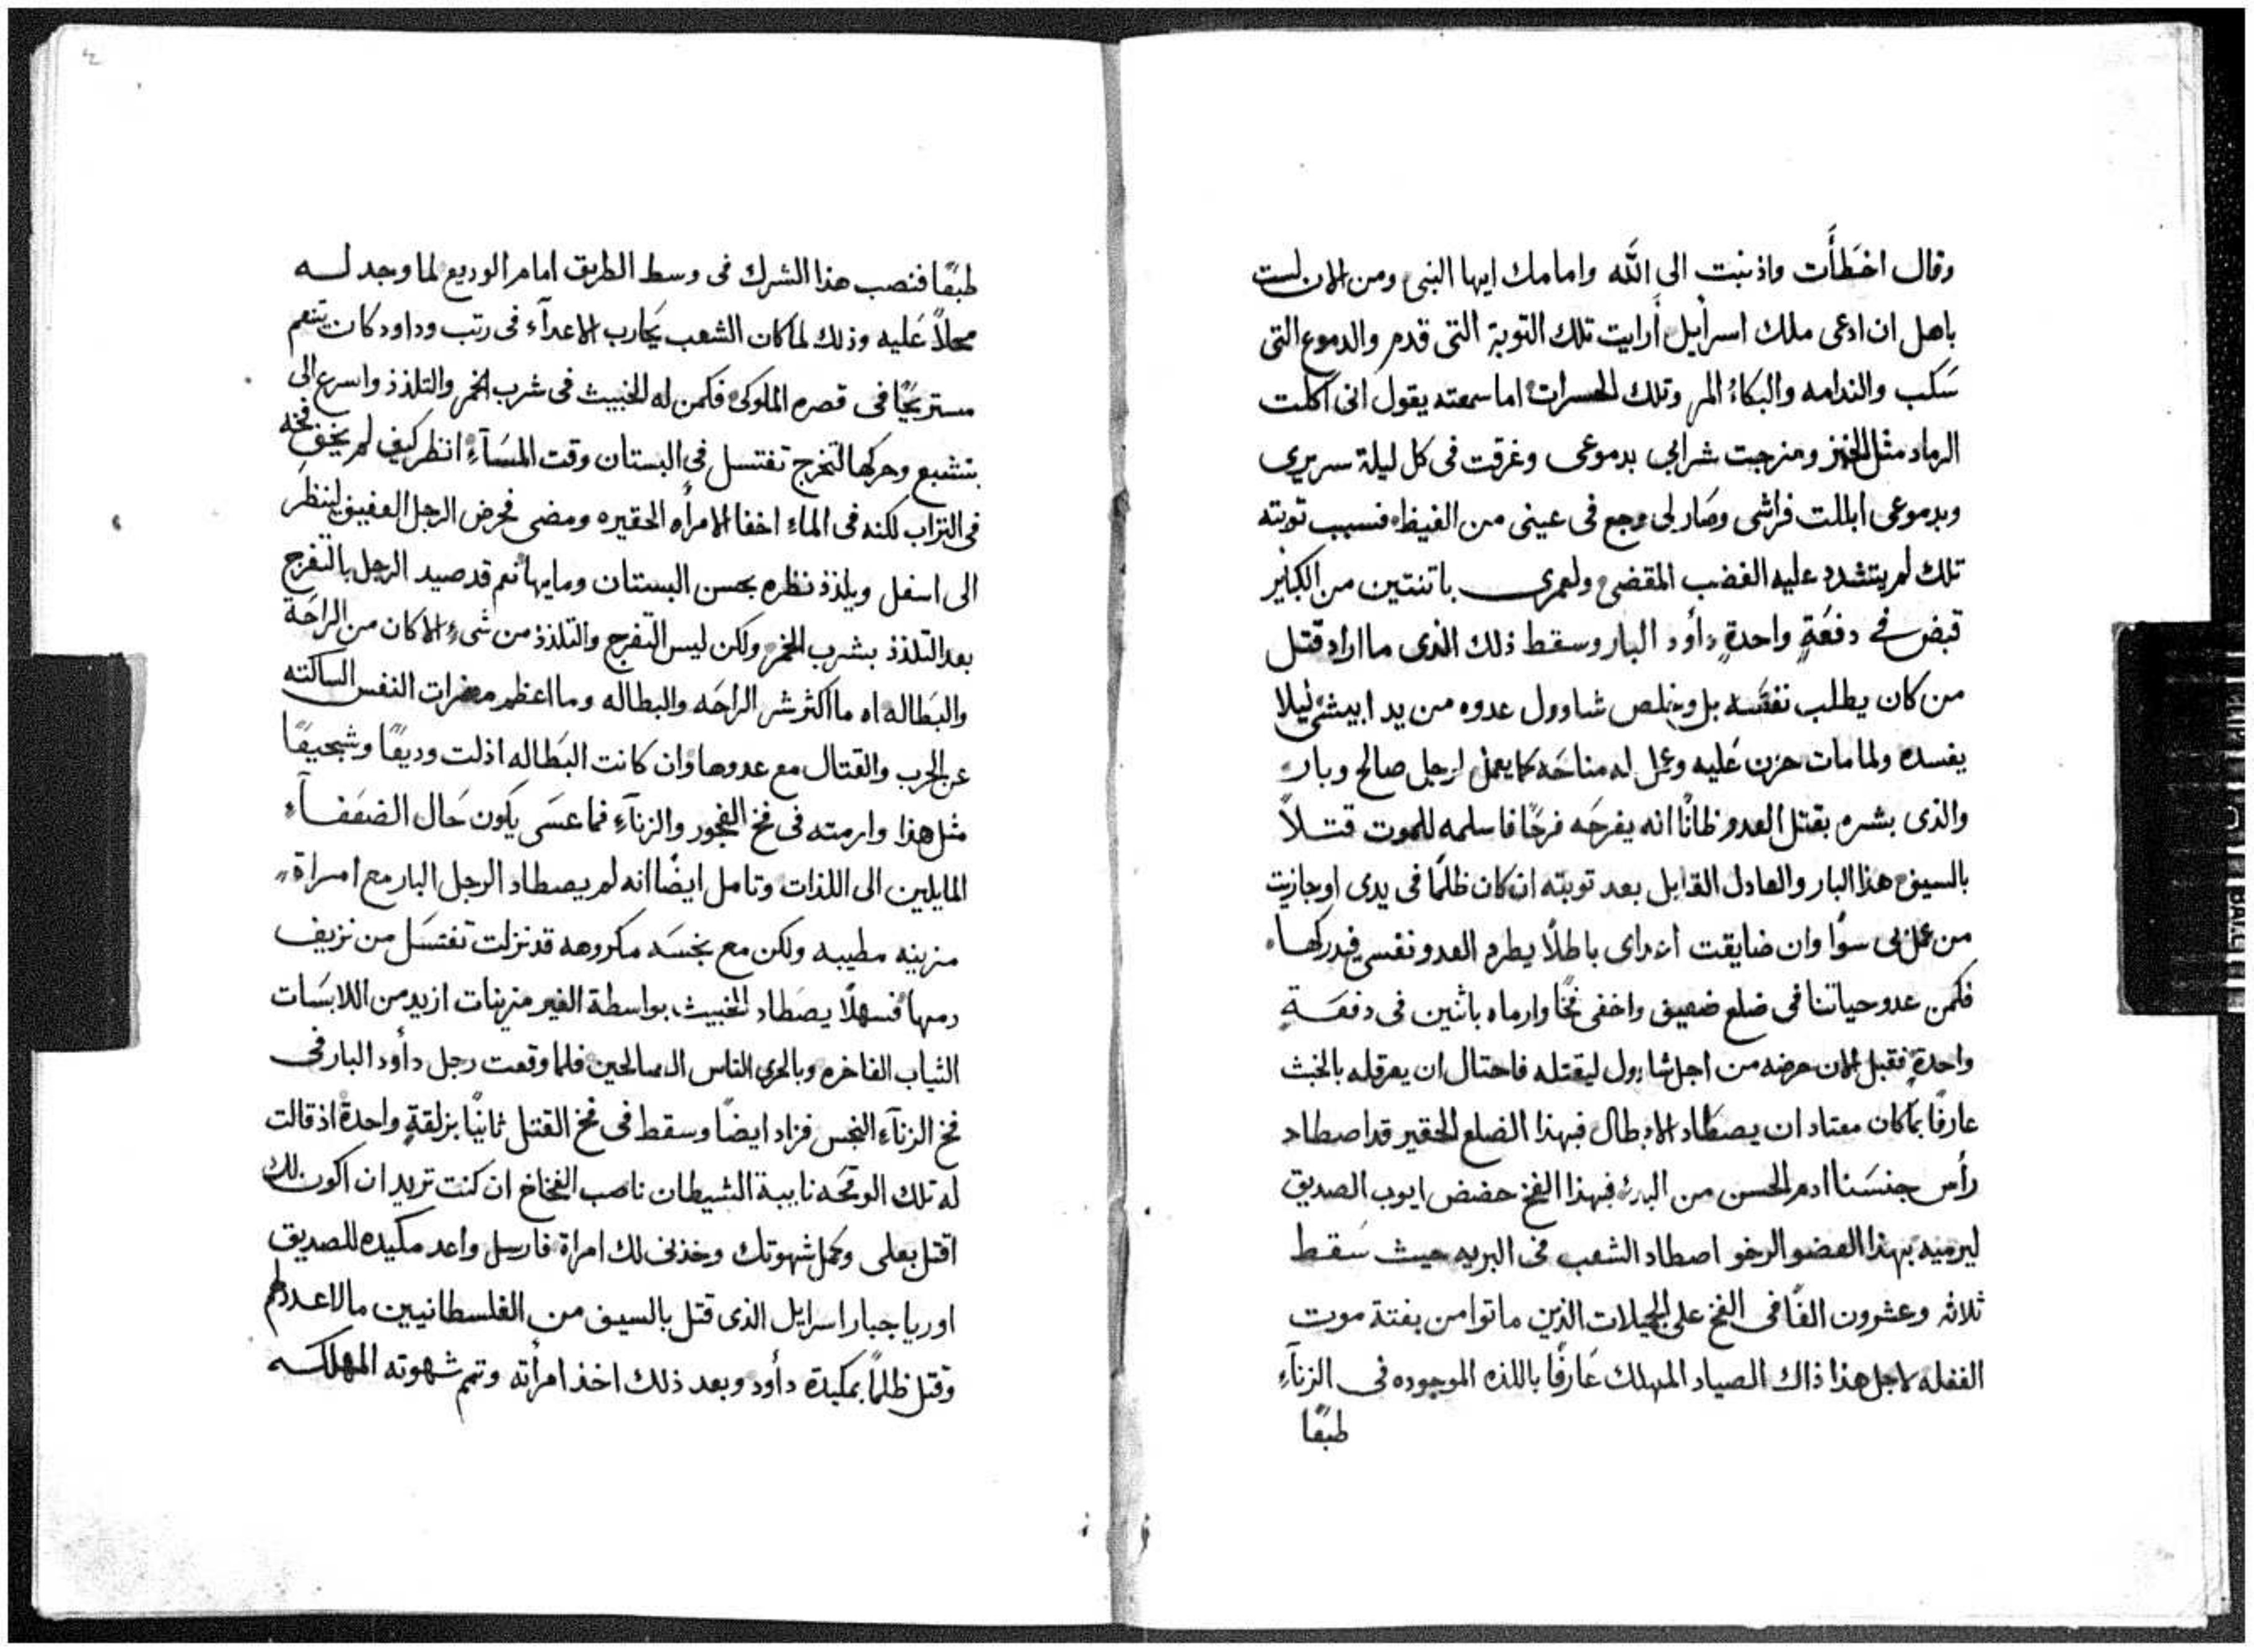 وقال اخطأت واذنبت الى الله وامامك ايها النبى ومن الان لست
باهل ان ادعى ملك اسرأيل أرايت تلك التوبة التى قدم والدموع التى
سكب والندامه والبكاء المر وتلك الحسرات اما سمعته يقول انى اكلت
الرماد مثل الخبز ومزجت شرابي بدموعى وغرقت فى كل ليلة سريرى
وبدموعى ابللت فراشى وصار لى وجع فى عينى من الغيظ فنسبب توبته
تلك لم يتشدد عليه الغضب المقضى ولعمرى باتنتين من الكباير
قبض في دفعةٍ واحدةٍ دأود البار وسقط ذلك الذى ما اراد قتل
من كان يطلب نفسه بل وخلص شاوول عدوه من يد ابيشى ليلا
يفسده ولما مات حزن عليه وعمل له مناحه كما يعمل لرجل صالح وبار
والذى بشره بقتل العدو ظانًا انه يفرحه فرحًا فاسلمه للموت قتلاً
بالسيف هذا البار والعادل القايل بعد توبته ان كان ظلمًا فى يدى او جازيت
من عمل بى سوًا وان ضايقت اعداى باطلًا يطرد العدو نفسى فيدركها
فكمن عدو حياتنا فى ضلع ضعيف واخفى فخًا وارماه باثنين فى دفعةٍ
واحدةٍ فقبل الان حرضه من اجل شاوول ليقتله فاحتال ان يعرقله بالخبث
عارفًا بما كان معتاد ان يصطاد الابطال فبهذا الضلع الحقير قد اصطاد
رأس جنسنا ادم الحسن من البدء فبهذا الفخ حضض ايوب الصديق
ليرميه بهذا العضو الرخو اصطاد الشعب فى البريه حيث سقط
ثلاثه وعشرون الفًا فى الفخ على الجميلات الذين ماتوا من بغتة موت
الغفله لاجل هذا ذاك الصياد المهلك عارفًا باللذه الموجوده فى الزنآءِ
طبعًا
طبعًا فنصب هذا الشرك فى وسط الطريق امام الوديع لما وجد له
محلاً عليه وذلك لما كان الشعب يحارب الاعدآء فى رتب وداود كان يتنعم
مستريحًا فى قصره الملوكى فكمن له الخبيث فى شرب الخمر والتلذذ واسرع الى
بتشبع وحركها لتخرج تغتسل فى البستان وقت المسآءِ انظر كيف لم يخف فخه
فى التراب لكنه فى الماء اخفا الامرأه الحقيره ومضى فحرض الرجل العفيف لينظر
الى اسفل ويلذذ نظره بحسن البستان ومايها نعم قد صيد الرجل بالتفرج
بعد التلذذ بشرب الخمر ولكن ليس التفرج والتلذذ من شىءٍ الا كان من الراحة
والبطاله اه ما اكثر شر الراحه والبطاله وما اعظم مضرات النفس الساكته
عن الحرب والقتال مع عدوها وان كانت البطاله اذلت وديعًا وشجيعًا
مثل هذا وارمته فى فخ الفجور والزنآءِ فما عسى يكون حال الضعفآء
المايلين الى اللذات وتامل ايضًا انه لم يصطاد الرجل البار مع امراة
مزينه مطيبه ولكن مع نجسه مكروهه قد نزلت تغتسل من نزيف
دمها فسهلًا يصطاد الخبيث بواسطة الغير مزينات ازيد من اللابسات
الثياب الفاخره وبالحرى الناس الصالحين فلما وقعت رجل دأود البار فى
فخ الزنآء النجس فزاد ايضًا وسقط فى فخ القتل ثانيًا بزلقةٍ واحدة اذ قالت
له تلك الوقحه نايبة الشيطان ناصب الفخاخ ان كنت تريد ان اكون لك
اقتل بعلى وكمل شهوتك وخذنى لك امراة فارسل واعد مكيده للصديق
اوريا جبار اسرايل الذى قتل بالسيف من الفلسطانيين ما لا عدد لهم
وقتل ظلمًا بمكيدة دأود وبعد ذلك اخذ امرأته وتمم شهوته المهلكه